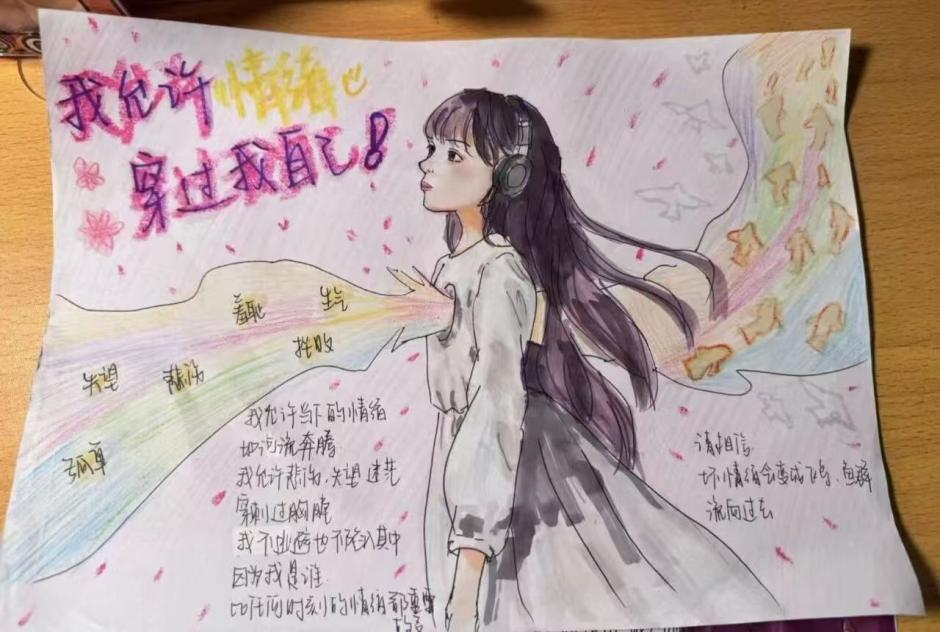 我允许情绪
穿过我自己!
羞耻
生气
挫败
失望
悲伤
孤单
我允许当下的情绪
如河流奔腾
我允许悲伤、失望 迷茫
穿刺过胸膛
我不逃避也不陷入其中
因为我是谁
比任何时刻的情绪都重要
请相信
坏情绪会变成飞鸟、鱼群
流向过去